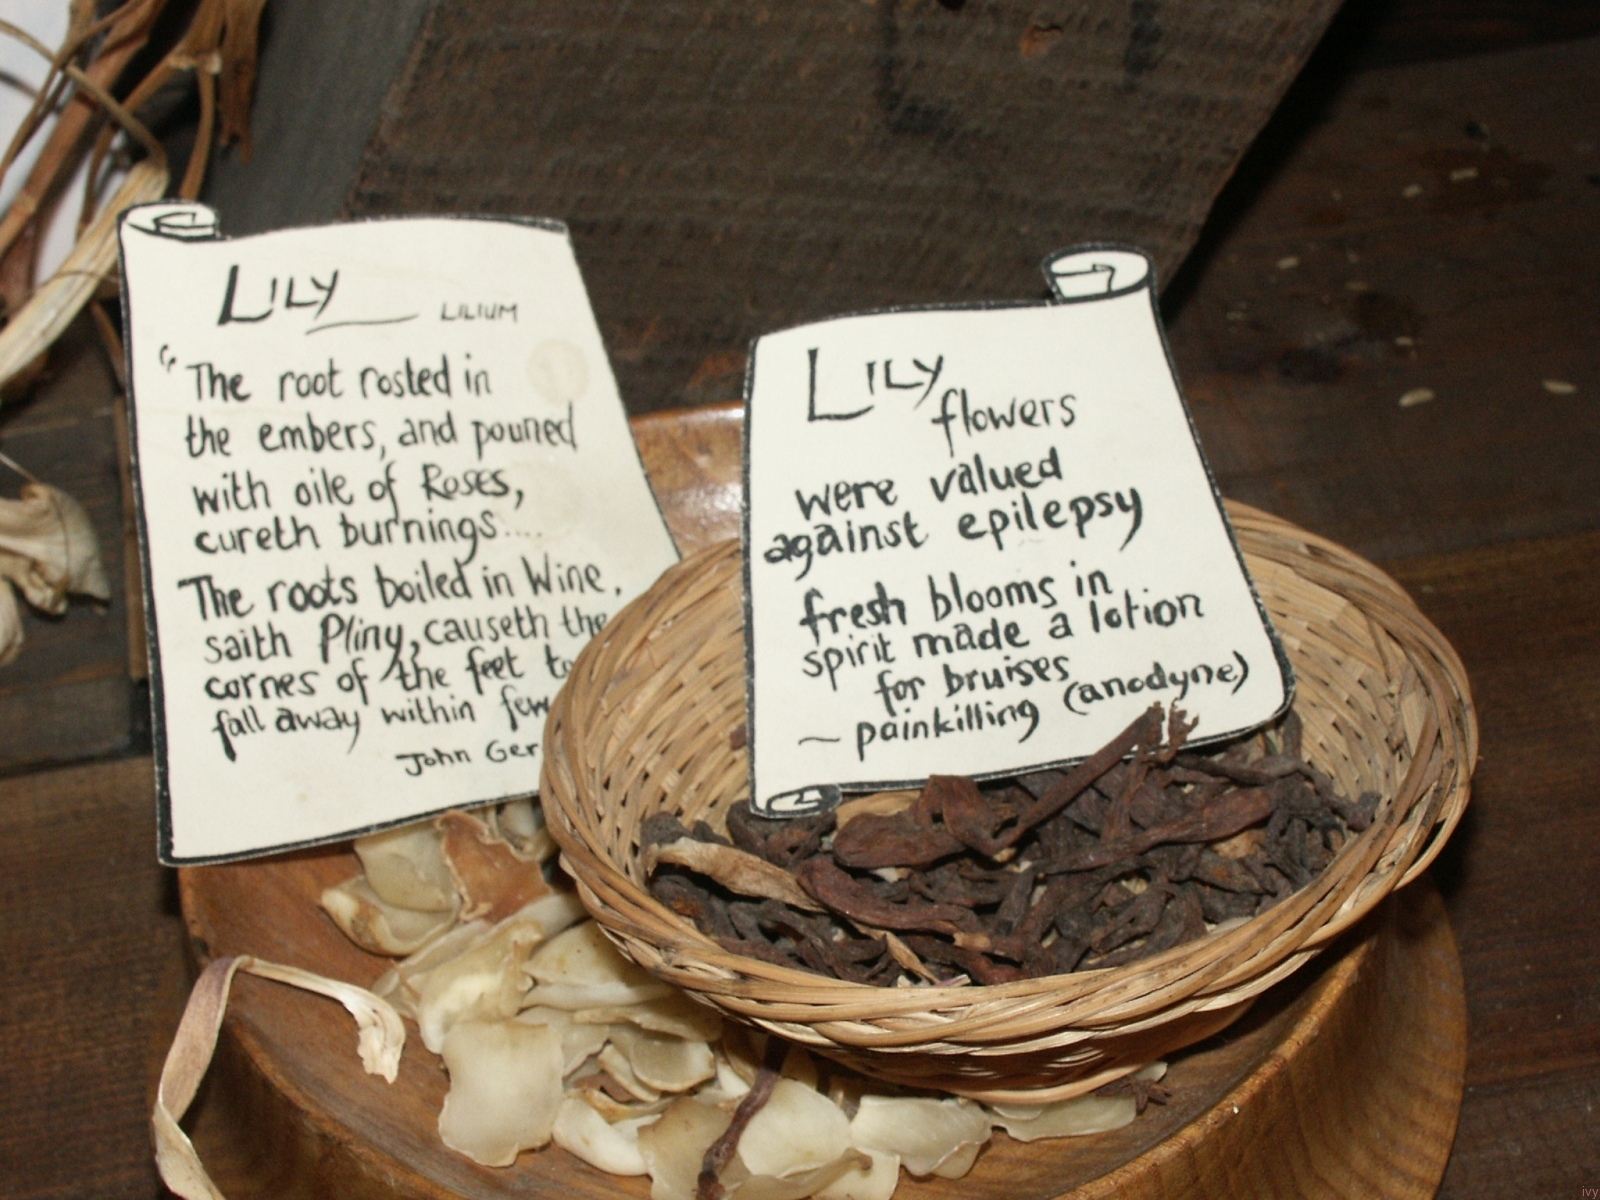 LILY LILIUM
"The root rosted in
the embers, and pouned
with oile of Roses,
cureth burnings....
The roots boiled in Wine,
saith Pliny, causeth the
cornes of the feet to
fall away within few
John Ger
LILY
flowers
were valued
against epilepsy
fresh blooms in
spirit made a lotion
for bruises
~ painkilling (anodyne)
ivy